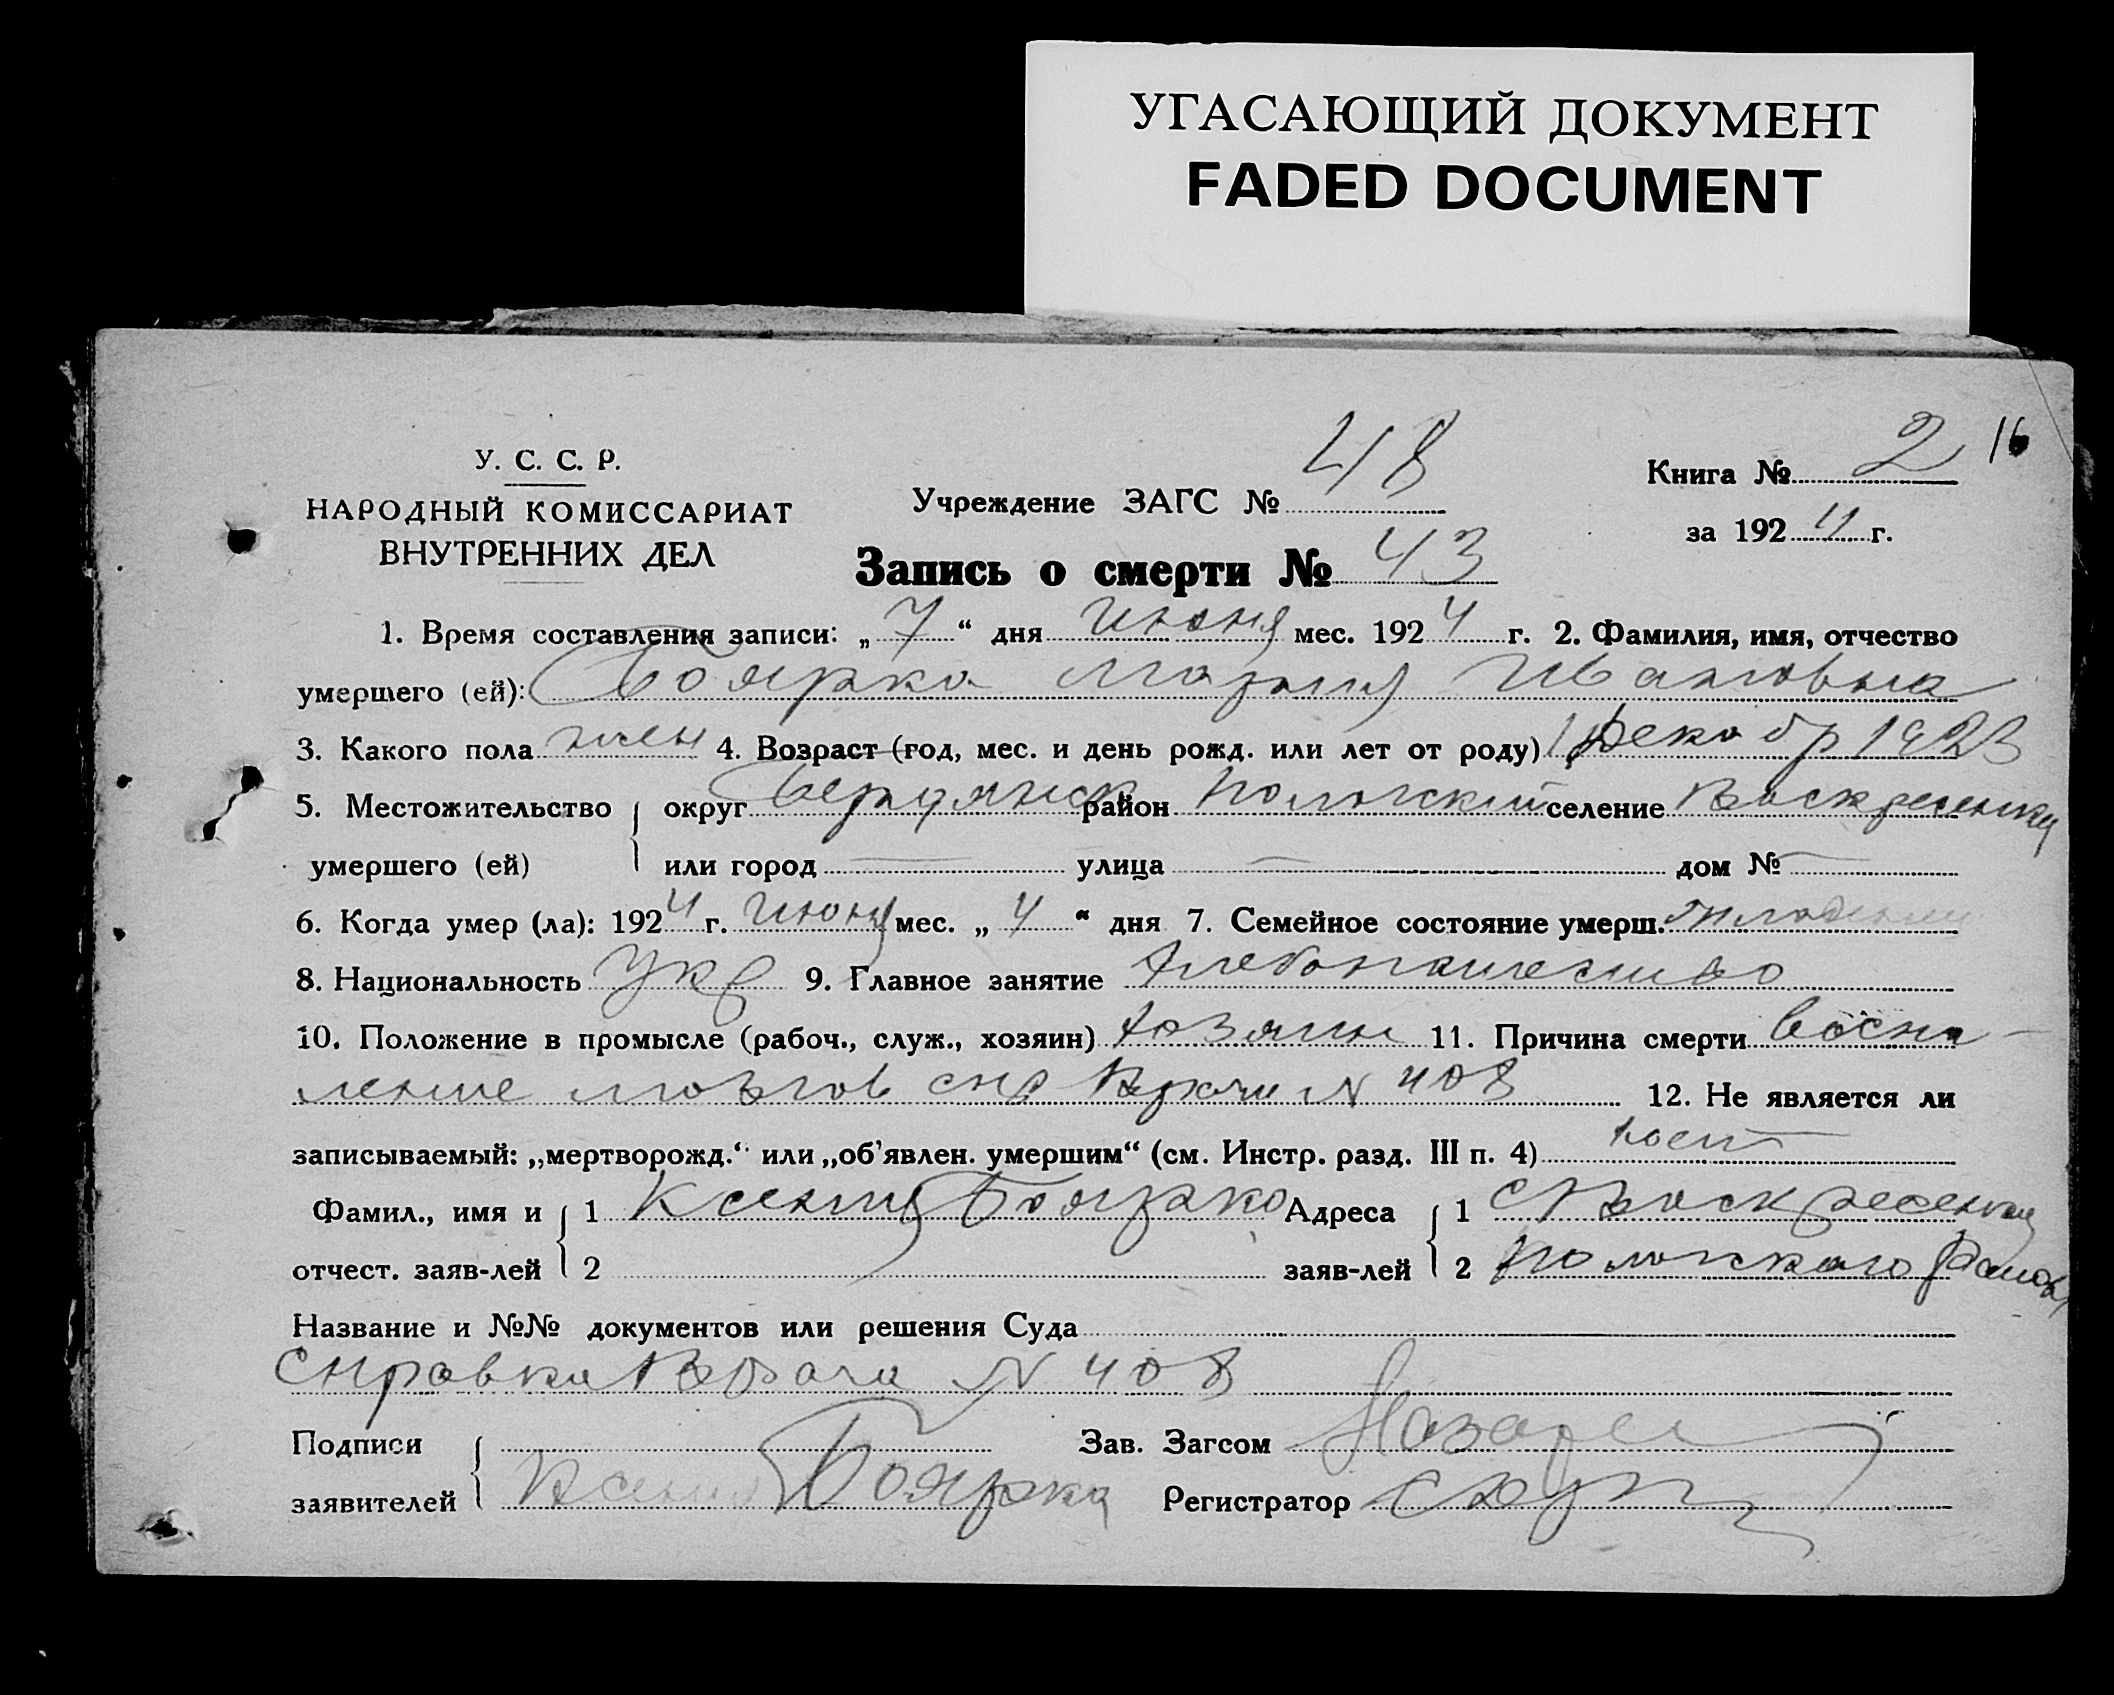 УГАСАЮЩИЙ ДОКУМЕНТ
FADED DOCUMENT
У. С. С. Р.
НАРОДНЫЙ КОМИССАРИАТ
ВНУТРЕННИХ ДЕЛ
Учреждение ЗАГС № 48
Книга № 2 16
за 1924 г.
Запись о смерти № 43
1. Время составления записи: „7“ дня июня мес. 1924 г. 2. Фамилия, имя, отчество
умершего (ей): Боярко Мария Ивановна
3. Какого пола жен 4. Возраст (год, мес. и день рожд. или лет от роду) 1 Декабр 1923
5. Местожительство округ Бердянск район Пологский селение Воскресенка
умершего (ей) или город — улица — дом № —
6. Когда умер (ла): 1924 г. июня мес. „4“ дня 7. Семейное состояние умерш.
8. Национальность Укр 9. Главное занятие Хлебопашество
10. Положение в промысле (рабоч., служ., хозяин) хозяин 11. Причина смерти воспа-
ление мозгов спр Врачи N 408 12. Не является ли
записываемый: „мертворожд.“ или „об'явлен. умершим“ (см. Инстр. разд. III п. 4)
Фамил., имя и 1 Ксения Боярко Адреса 1 с Воскресенка
отчест. заяв-лей 2 заяв-лей 2 Пологскаго Района
Название и №№ документов или решения Суда
Справка Врача N 408
Подписи Зав. Загсом
заявителей Ксения Боярка Регистратор